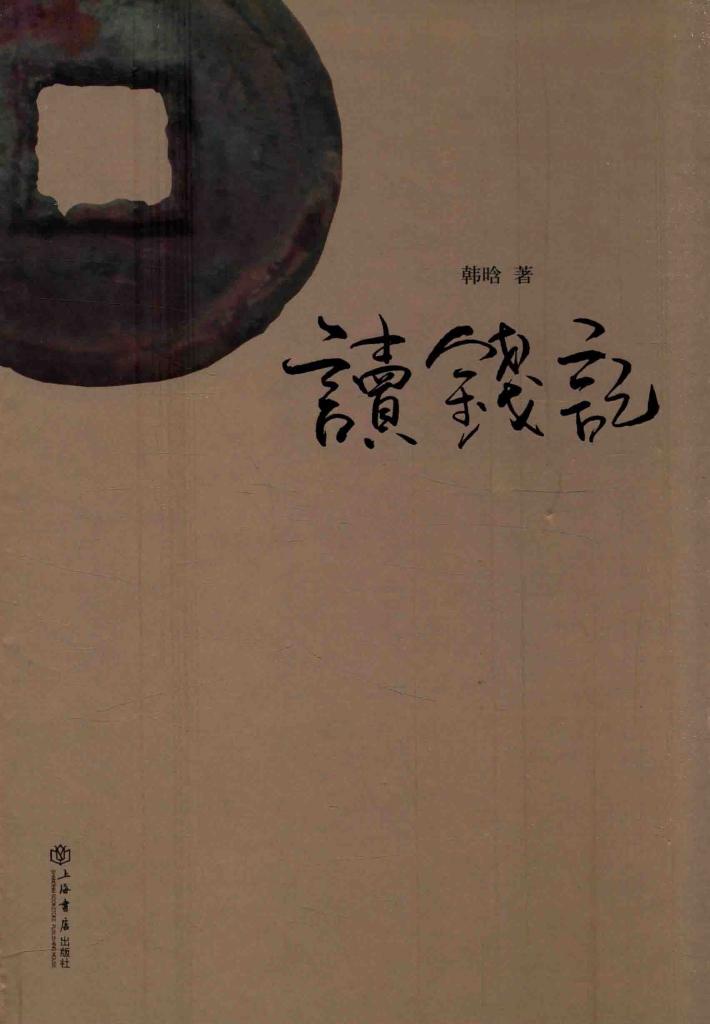 韩晗 著
讀錢記
上海書店出版社
SHANGHAI BOOKSTORE PUBLISHING HOUSE